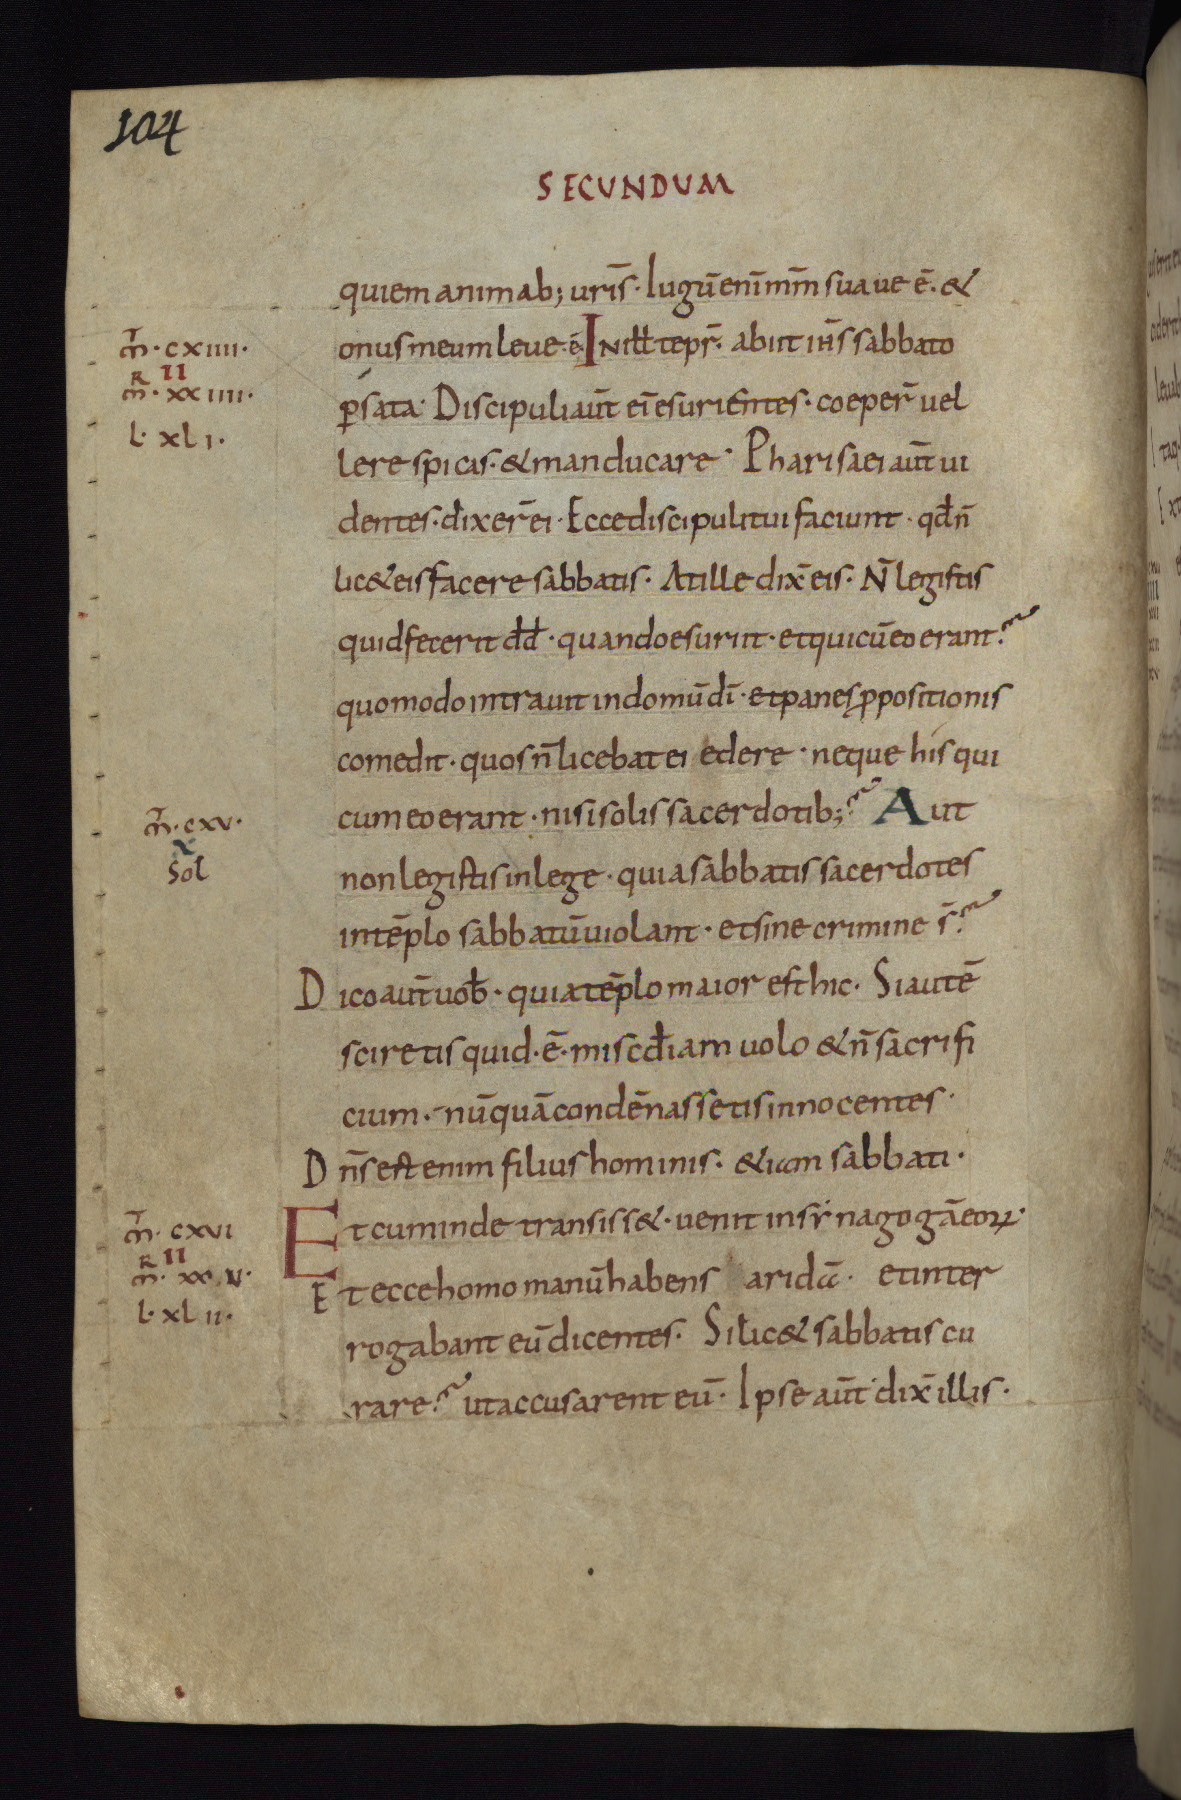 104
SECUNDUM
quiem animab; urīs· Iugū enī mm̄ suaue ē· &
mt̄· cxiiii·
onus meum leue·ē· In illt tepr̄· abiit ih̄s sabbato
R II
mr̄· xxiiii·
ꝑ sata· Discipuli aut̄ eī esurientes· coeper̄ uel
l· xli·
lere spicas· & manducare· Pharisaei aut̄ ui
dentes· dixer̄ ei· Ecce discipuli tui faciunt· qđ n̄
lic& eis facere sabbatis· At ille dix̄ eis· N̄ legistis
quid fecerit dd̄· quando esuriit· et qui cū eo erant?
quomodo intrauit in domū dī· et panes ꝓpositionis
comedit· quos n̄ licebat ei edere· neque his qui
mt̄· cxv·
cum eo erant· nisi solis sacerdotib;? Aut
x
Sol
non legistis in lege· quia sabbatis sacerdotes
in tēplo sabbatū uiolant· et sine crimine s̄?
Dico aut̄ uob̄· quia tēplo maior est hic· Si autē
sciretis quid·ē· miscđiam uolo & n̄ sacrifi
cium· nūquā condēnassetis innocentes·
Dn̄s est enim filius hominis· &iam sabbati·
mt̄· cxvi
Et cum inde transiss&· uenit in synagogā eoꝝ·
R II
mr̄· xxv·
Et ecce homo manū habens aridā· et inter
l· xlii·
rogabant eū dicentes· Si lic& sabbatis cu
rare? ut accusarent eū· Ipse aut̄ dix̄ illis·